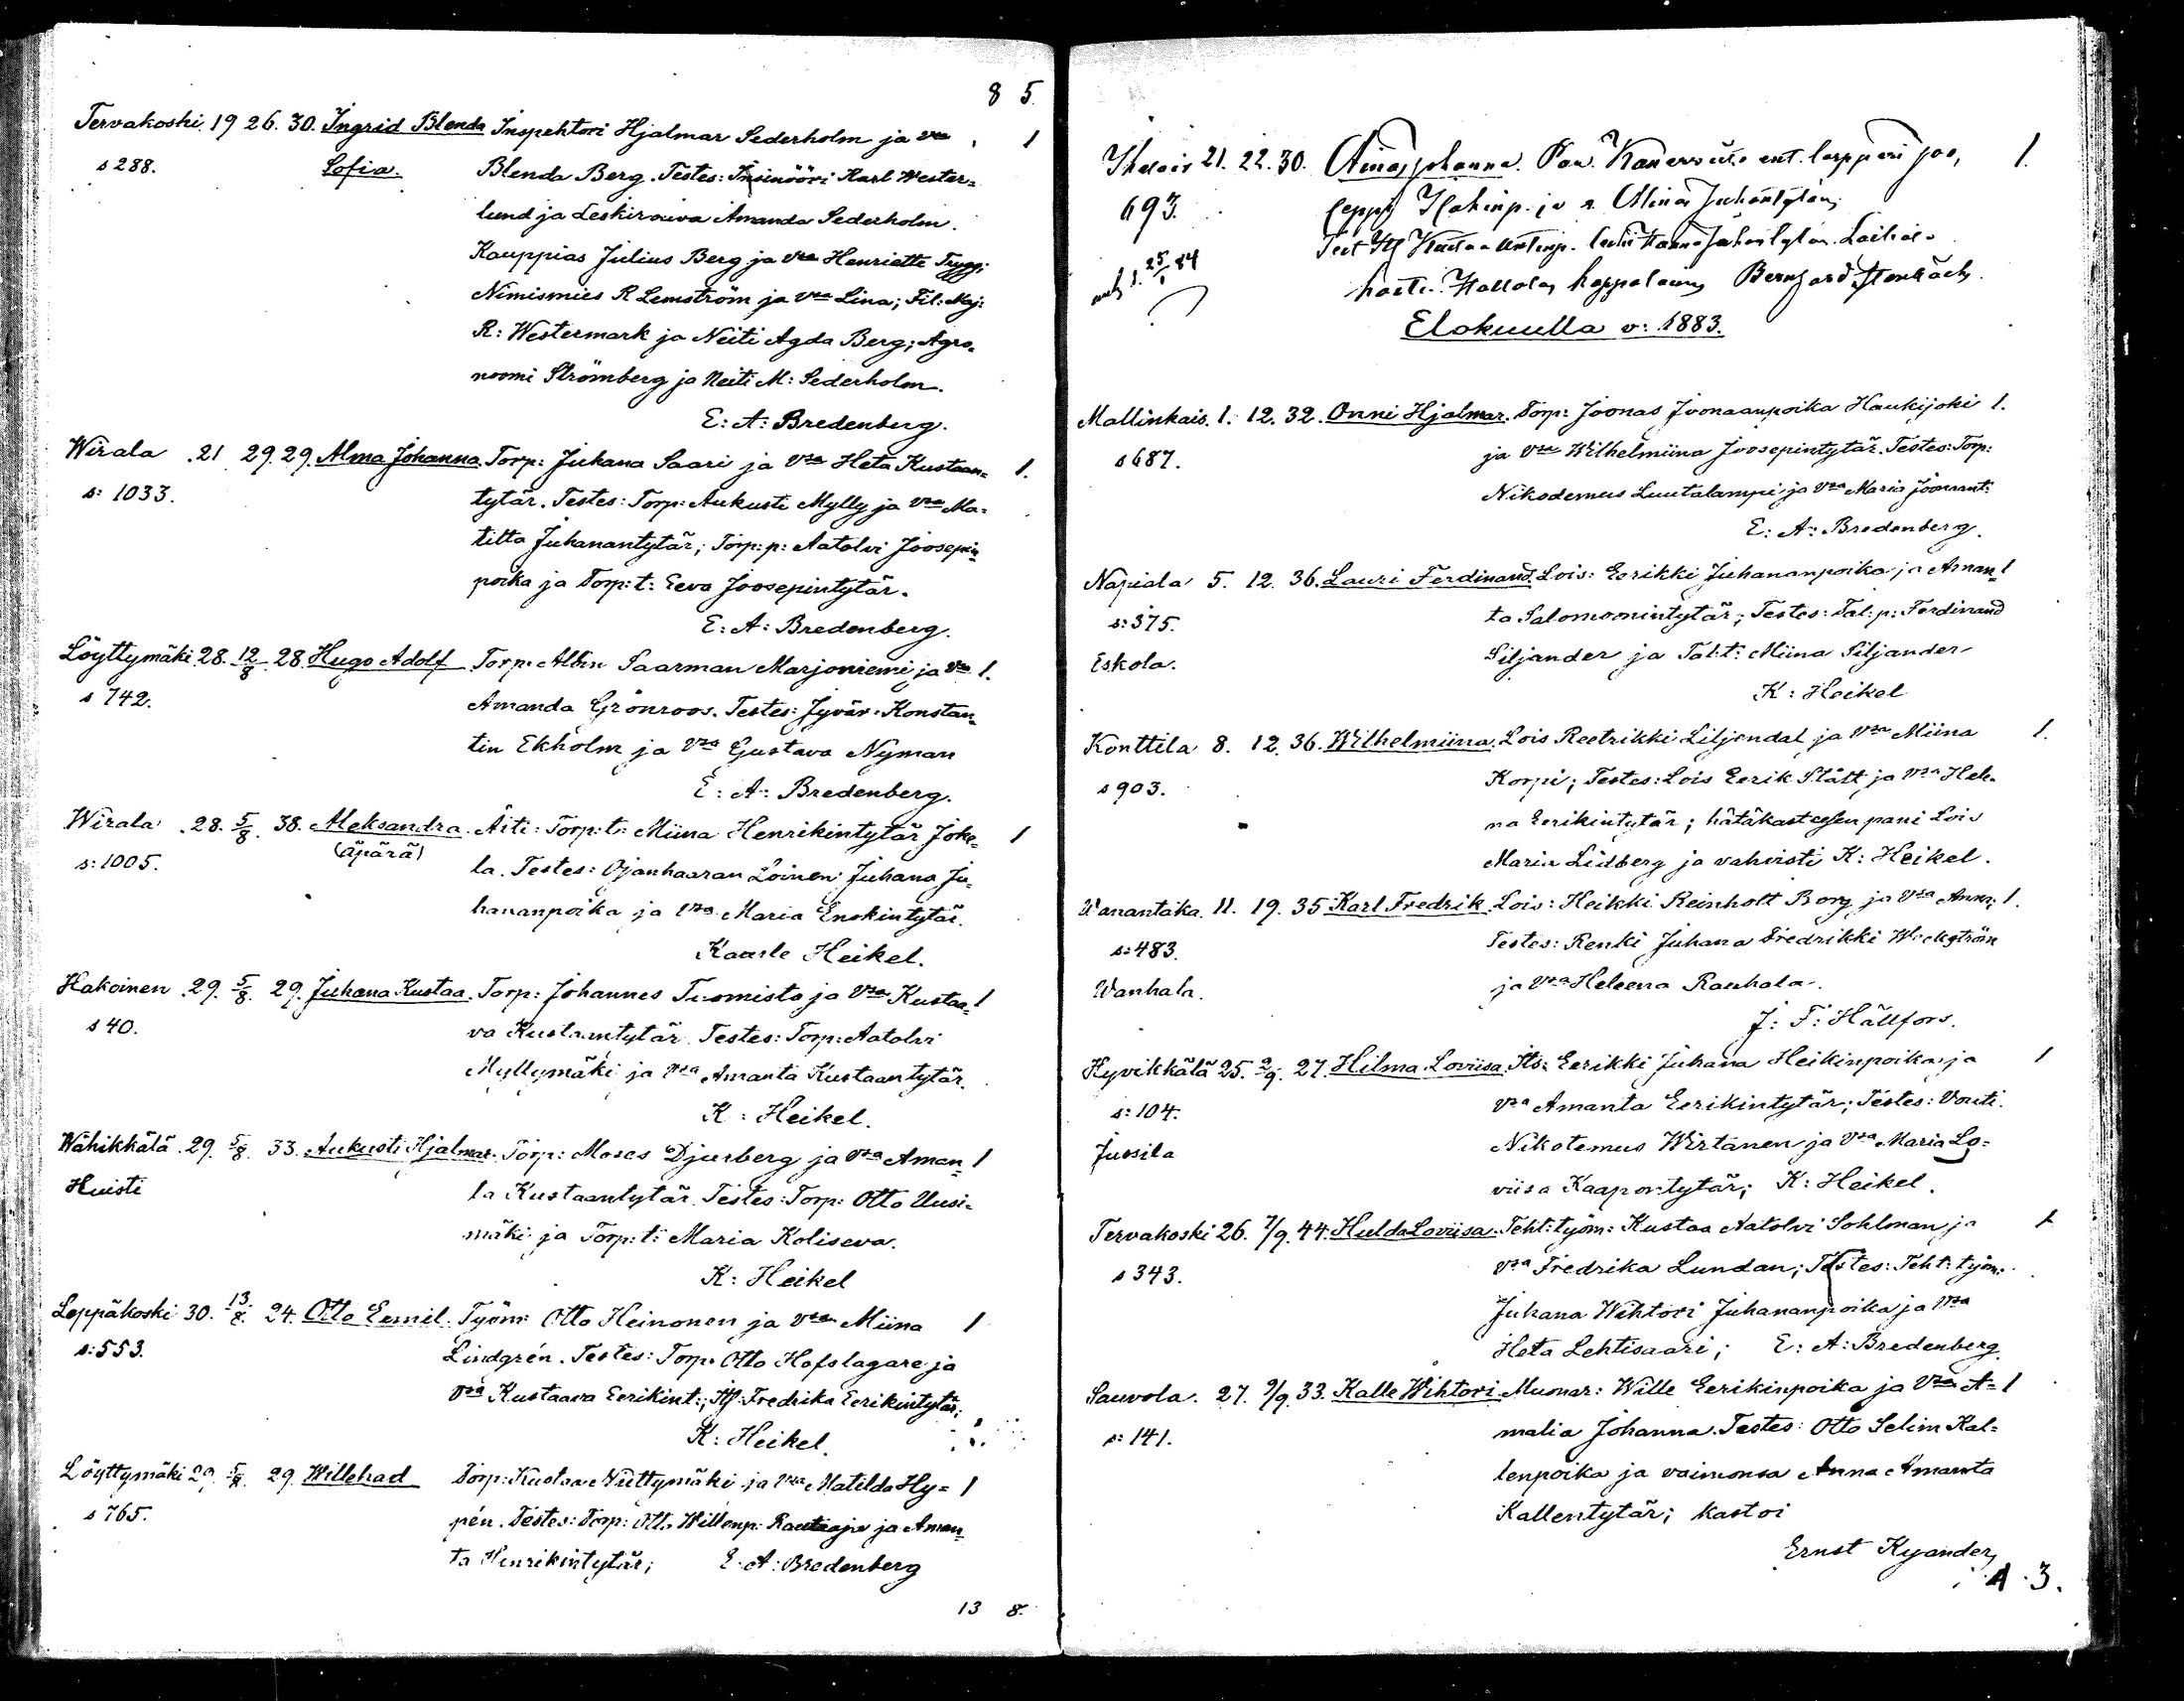 8 5.
Tervakoski. 19 26. 30. Ingrid Blenda Inspehtori Hjalmar Sederholm ja vsa 1
s 288. Sofia. Blenda Berg. Testes: Insinööri Karl Wester=
lund ja Leskirouva Amanda Sederholm.
Kauppias Julius Berg ja vsa Henriette Trygg;
Nimismies R Lemström ja vsa Lina; Fil: Maj:
R: Westermark ja Neiti Agda Berg; Agro=
noomi Strömberg ja Neiti M: Sederholm.
E: A: Bredenberg.
Wirala .21 29. 29. Alma Johanna. Torp: Juhana Saari ja vsa Heta Kustaan= 1.
s: 1033. tytär. Testes: Torp: Aukusti Mylly ja vsa Ma=
titta Juhanantytär; Torp:p: Aatolvi Joosepin
poika ja Torp:t: Eeva Joosepintytär.
E: A: Bredenberg.
Löyttymäki. 28. 12/8 28. Hugo Adolf Torp: Albin Saarman Marjoniemi ja vsa 1.
s 742. Amanda Grönroos. Testes: Jyvär: Konstan=
tin Ekholm ja vsa Gustava Nyman
E: A: Bredenberg.
Wirala .28. 5/8. 38. Aleksandra. Äiti: Torp:t: Miina Henrikintytär Joke= 1
s: 1005. (äpärä) la. Testes: Ojanhaaran Loinen Juhana Ju=
hananpoika ja vsa Maria Enokintytär.
Kaarle Heikel.
Hakoinen .29. 5/8. 29. Juhana Kustaa. Torp: Johannes Tuomisto ja vsa Kustaa= 1
s 40. va Kustaantytär. Testes: Torp: Aatolvi
Myllymäki ja vsa Amanta Kustaantytär.
K: Heikel.
Wähikkälä .29. 5/8. 33. Aukusti Hjalmar. Torp: Moses Djurberg ja vsa Aman= 1
Huisti ta Kustaantytär. Testes: Torp: Otto Uusi=
mäki ja Torp:t: Maria Koliseva.
K: Heikel
Leppäkoski 30. 13/8. 24. Otto Eemil. Työm: Otto Heinonen ja vsa Miina 1
s: 553. Lindgrén. Testes: Torp: Otto Hofslagare ja
vsa Kustaava Eerikint:; Itf: Fredrika Eerikintytär;
K: Heikel.
Löyttymäki 29. 5/8. 29. Willehad Torp: Kustaa Niittymäki ja vsa Matilda Hy= 1
s 765. pén. Testes: Torp: Otto Willenp: Rautaoja ja Aman=
ta Henrikintytär; E: A: Bredenberg
13 8.
21. 22. 30. Aina Johanna. 1.
693.
25/1 84
Elokuulla v: 1883.
Mallinkais. 1. 12. 32. Onni Hjalmar. Torp: Joonas Joonaanpoika Haukijoki 1.
s 687. ja vsa Wilhelmiina Joosepintytär. Testes: Torp:
Nikodemus Luutalampi ja vsa Maria Joonant:
E: A: Bredenberg.
Napiala 5. 12. 36. Lauri Ferdinand. Lois: Eerikki Juhananpoika ja Aman= 1
s: 375. ta Salomonintytär; Testes: Tal:p: Ferdinand
Eskola. Siljander ja Tal:t: Miina Siljander
K: Heikel
Konttila 8. 12. 36. Wilhelmiina. Lois Reetrikki Liljendal ja vsa Miina 1.
s 903. Korpi; Testes: Lois Eerik Slätt ja vsa Hele=
na Eerikintytär; hätäkasteesen pani Lois
Maria Lidberg ja vahvisti K: Heikel.
Wanantaka. 11. 19. 35 Karl Fredrik. Lois: Heikki Reinholt Borg ja vsa Anna; 1.
s: 483. Testes: Renki Juhana Fredrikki Weckström
Wanhala. ja vsa Heleena Rauhala.
J: F: Hällfors.
Hyvikkälä 25. 2/9. 27. Hilma Loviisa. Its: Eerikki Juhana Heikinpoika ja 1
s: 104. vsa Amanta Eerikintytär; Testes: Vouti
Jussila Nikotemus Wirtanen ja vsa Maria Lo=
viisa Kaapontytär; K: Heikel.
Tervakoski 26. 7/9. 44. Hulda Loviisa. Teht: työm: Kustaa Aatolvi Sohlman ja 1
s 343. vsa Fredrika Lundan; Testes: Teht: työm:
Juhana Wihtori Juhananpoika ja vsa
Heta Lehtisaari; E: A: Bredenberg.
Sauvola. 27. 9/9 33. Kalle Wihtori. Muonar: Wille Eerikinpoika ja vsa A= 1
s: 141. malia Johanna. Testes: Otto Selim Kal=
lenpoika ja vaimonsa Anna Amanta
Kallentytär; kastoi
Ernst Kyander,
4 . 3.